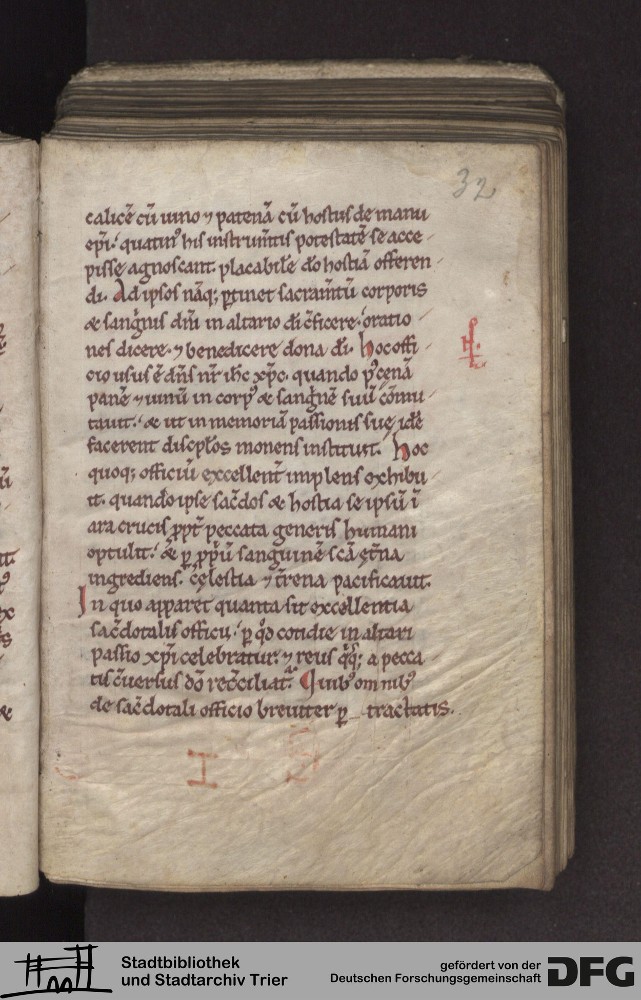 32
calicē cū uino ⁊ patenā cū hostiis de manu
ep̄i. quatin᷒ his instrum̄tis potestatē se acce
pisse agnoscant. placabilē dō hostiā offeren
di. Ad ipsos nāq; ꝑtinet sacram̄tū corporis
& sanguinis dn̄i in altario dī c̄ficere. oratio
nes dicere. ⁊ benedicere dona dī. hoc offi
cio usus ē dn̄s nr̄ ih̄c xp̄c. quando p᷒ cenā
panē ⁊ uinū in corp᷒ & sanguinē suū cōmu
tauit. & ut in memoriā passionis suę idē
facerent discip̄los monens instituit. hoc
quoq; officiū excellent̄ implens exhibu
it. quando ipse sac̄dos & hostia se ipsū ī
ara crucis ꝓpt̄ peccata generis humani
optulit. & ꝑ ꝓpriū sanguinē sc̄a et̄na
ingrediens. cęlestia ⁊ t̄rena pacificauit.
In quo apparet quanta sit excellentia
sac̄dotalis officii. ꝑ qd̄ cotidie in altari
passio xp̄i celebratur. ⁊ reus qsq; a pecca
tis c̄uersus dō rec̄ciliat᷑. Quib᷒ omnib᷒
de sac̄dotali officio breuiter ꝑ tractatis.
Stadtbibliothek
und Stadtarchiv Trier
gefördert von der
Deutschen Forschungsgemeinschaft
DFG